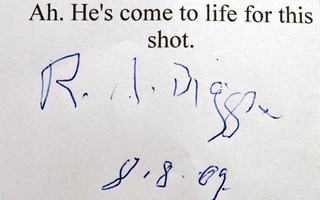 Ah. He's come to life for this
shot.
R. A. Biggs
8.8.09